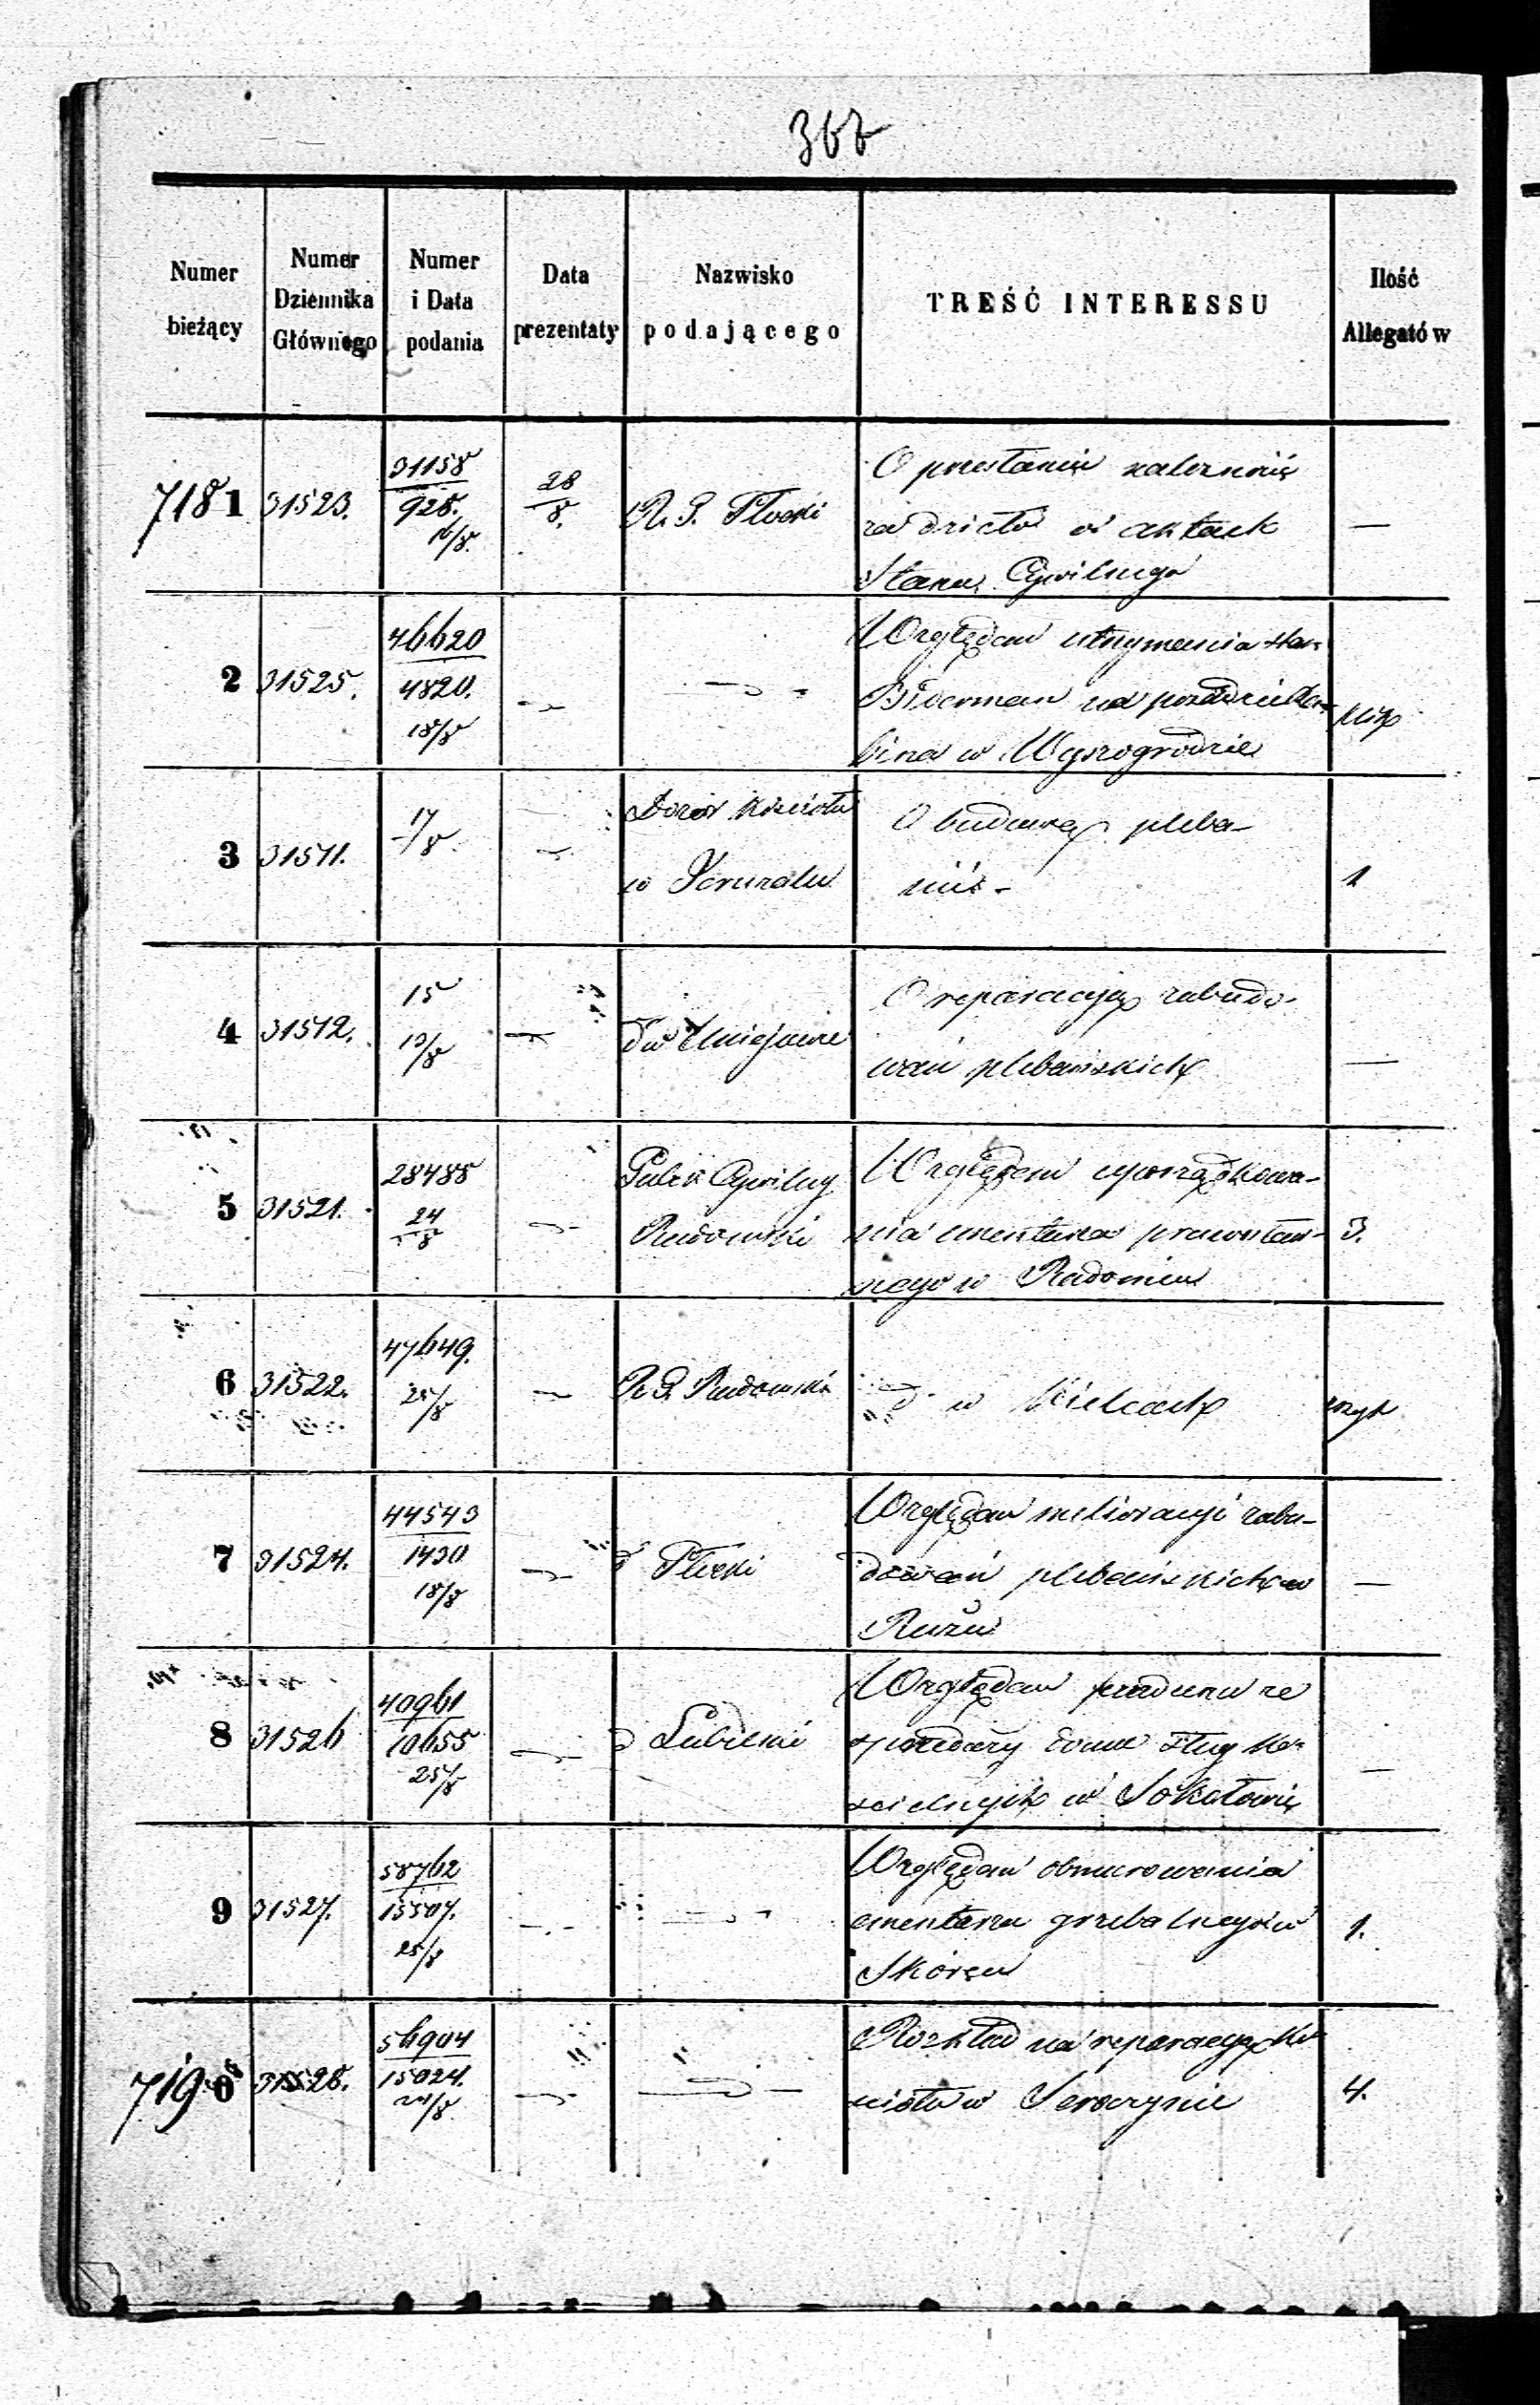 367
Numer bieżący
Numer Dziennika Głównego
Numer i Data podania
Data prezentaty
Nazwisko podającego
TREŚĆ INTERESSU
Ilość Allegatów
7181 31523. 31158 / 925. 16/8. 28/8. R. G. Płocki
O przesłanie
w aktach —
Stanu Cywilnego
2 31525. 46620 / 4820. 18/8 — —
Względem utrzymania
w Wyszogrodzie
3 31511. 17/8. — Dozór Kościoła
w
O budowę pleba-
nii - 1
4 31512. 15 19/8 —
O reparacyą zabudo-
wań plebańskich —
5 31521. 28488 24/8 —
Radomski
Względem uporządkowa-
nia cmentarza prawosław- 3.
nego w Radomiu
6 31522. 47649. 25/8 — R. G. Radomski
d° w Kielcach
7 31524. 44543 / 1430 18/8 — d Płocki
Względem melioracyi zabu-
dowań plebańskich w —
8 31526 40961 / 10655 25/8 — d Lubelski
Względem
sprzedaży domu sług ko-
ścielnych w Sokołowie —
9 31527. 58762 / 15507. 25/8 — —
Względem obmurowania
cmentarza grzebalnego w 1.
Skórcu
7190 31528. 56904 / 15024. 21/8 — —
Rozkład na reparacyą Ko-
ścioła w Seroczynie 4.